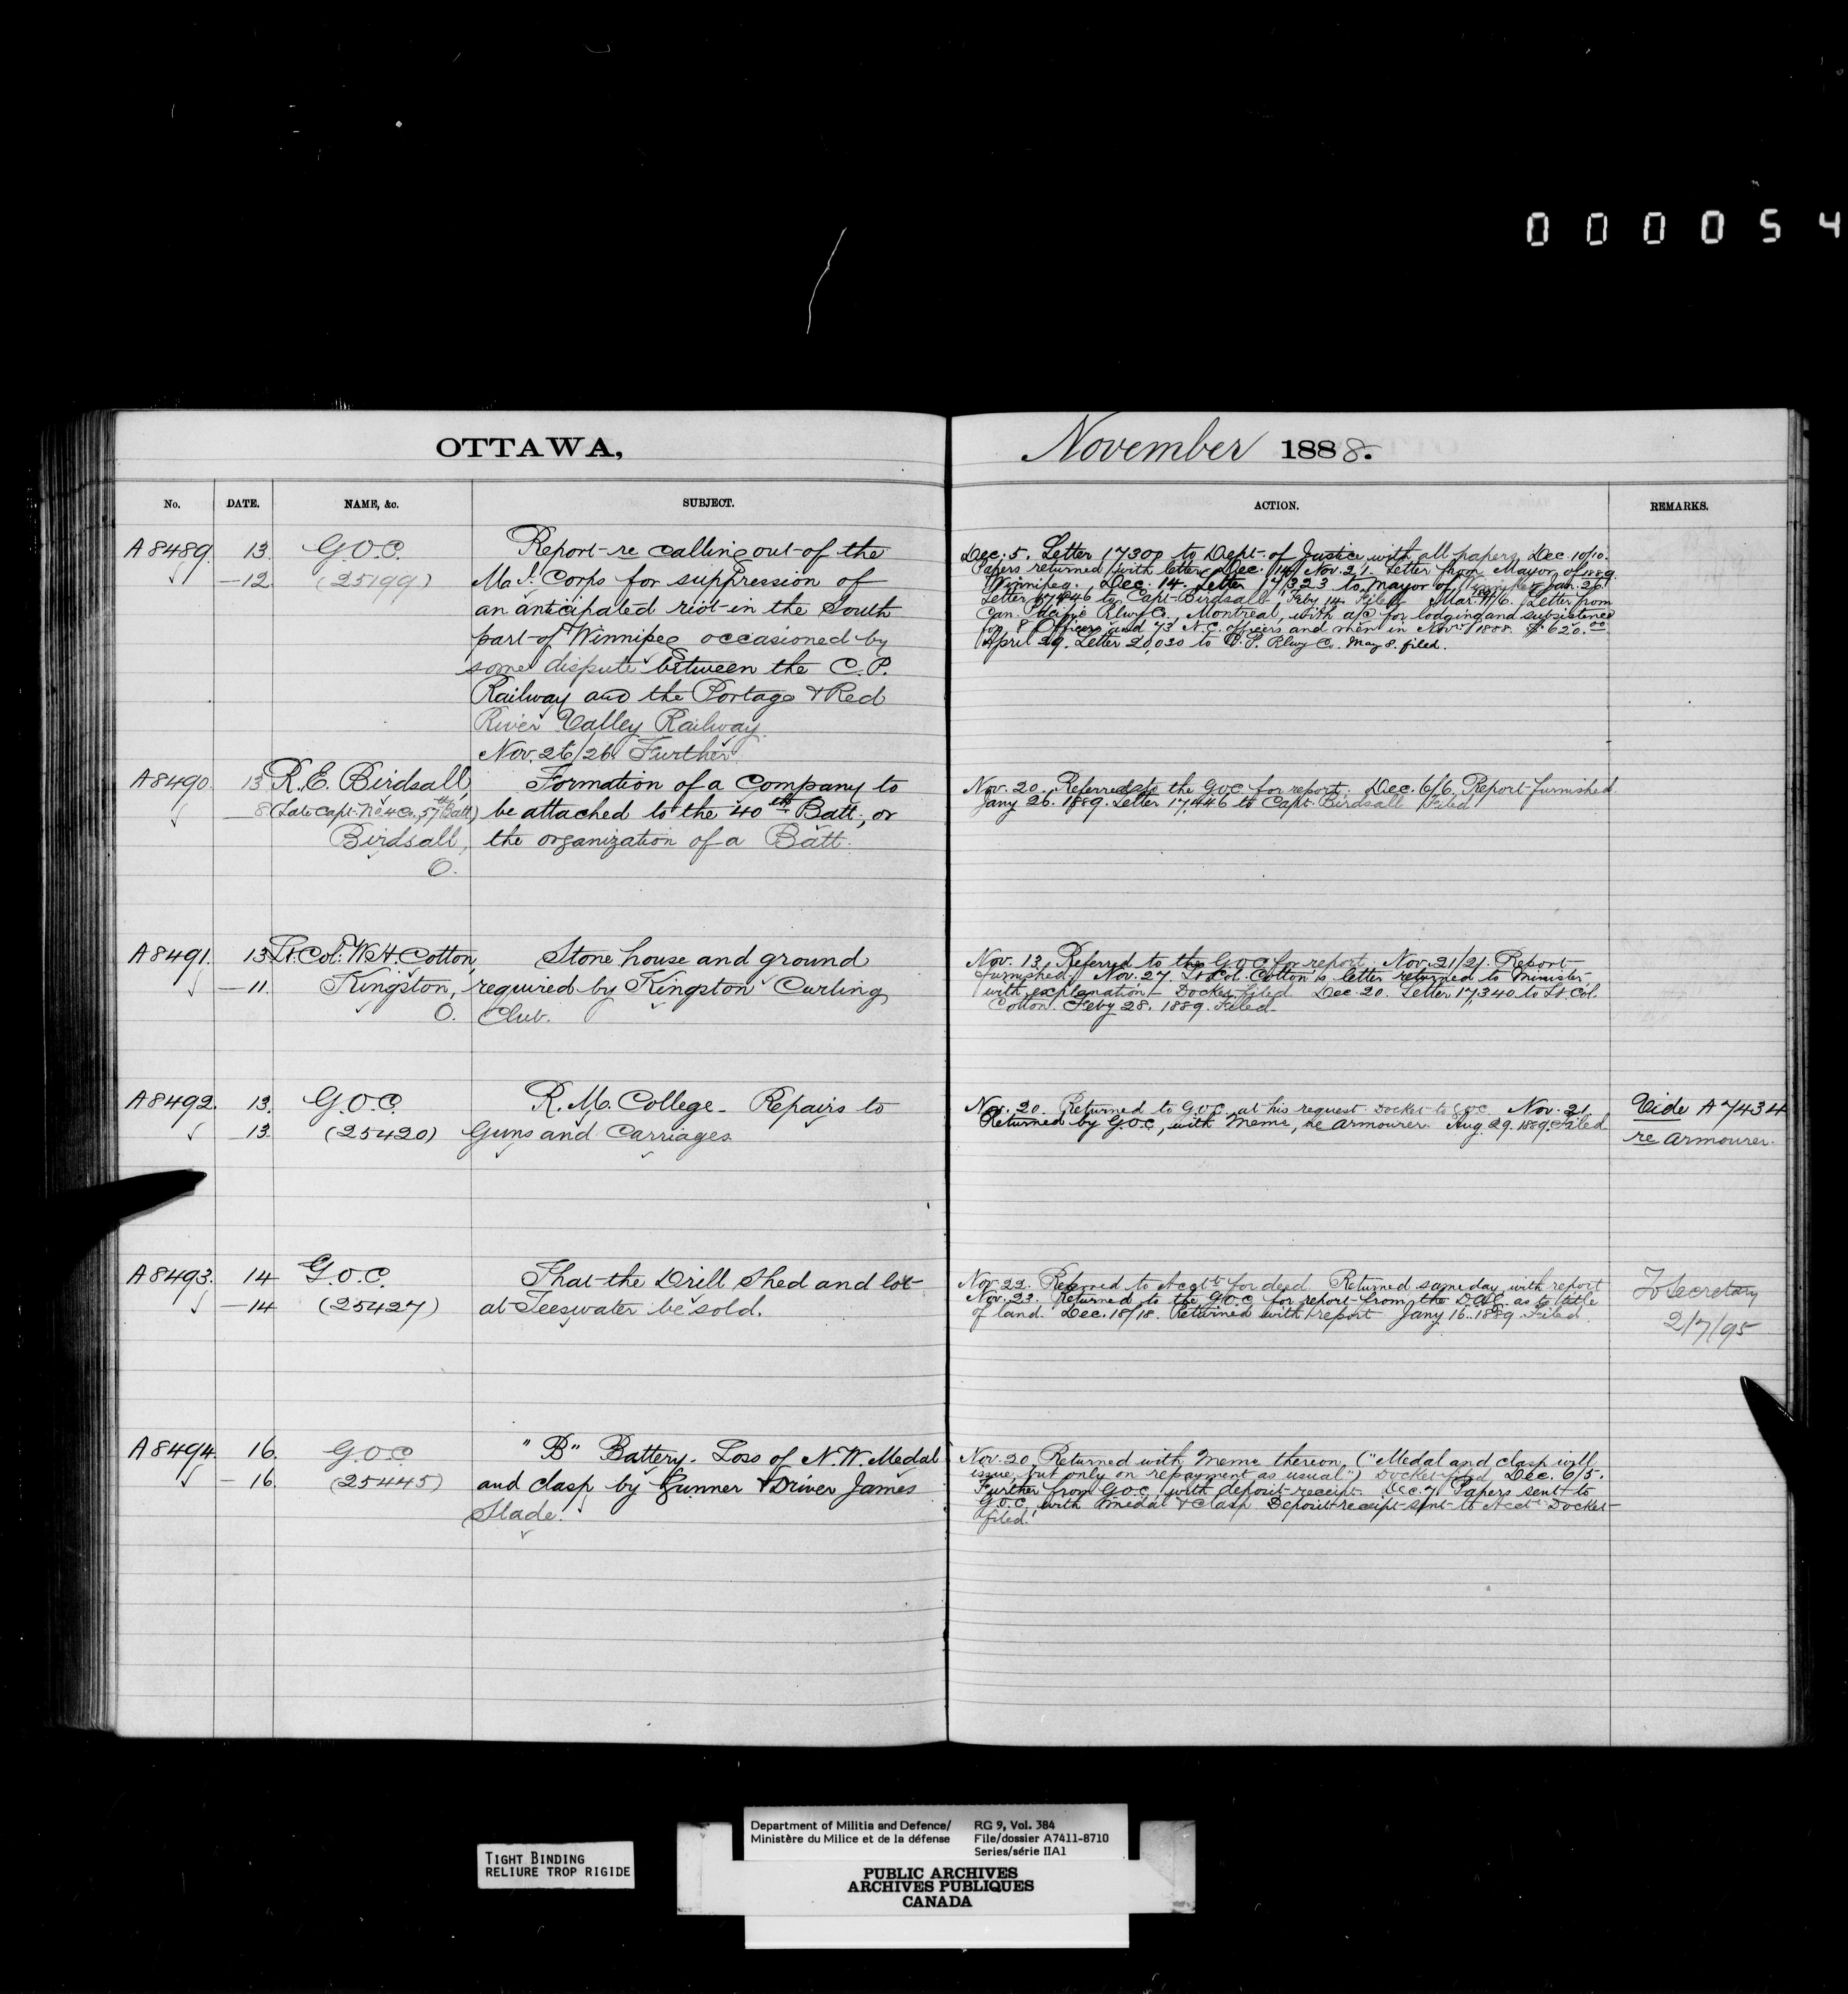 0 0 0 0 5 4
OTTAWA,
November 1888.
No. DATE. NAME, &c. SUBJECT. ACTION. REMARKS.
A 8489. 13. G.O.C. Report re calling out of the
—12. (25199) Mal. Corps for suppression of
an anticipated riot in the South
part of Winnipeg occasioned by
some dispute between the C.P.
Railway and the Portage & Red
River Valley Railway.
Nov. 26/26 Further
Dec. 5. Letter 17300 to Dept. of Justice with all papers. Dec. 10/10.
Papers returned with letter. Dec. 14/ Nov. 21. Letter from Mayor of
Winnipeg. Dec. 14. Letter 17323 to Mayor of Winnipeg. 1889. Jan. 26.
Letter 17446 to Capt. Birdsall Feby 14. Filed Mar. /6. Letter from
Can. Pacific Rlwy Co., Montreal, with a/c for lodging and subsistence
for 8 Officers and 73 N.C. officers and men in Novr. 1888. $620.00
April 29. Letter 20,030 to C.P. Rlwy Co. May 8. filed.
A 8490. 13 R. E. Birdsall, Formation of a Company to
8 (Late Capt. No 4 Co., 57th Batt) be attached to the 40th Batt., or
Birdsall, the organization of a Batt.
O.
Nov. 20. Referred to the G.O.C. for report. Dec. 6/6. Report furnished.
Jany 26. 1889. Letter 17,446 to Capt. Birdsall Filed
A 8491. 13 Lt. Col. W.H. Cotton, Stone house and ground
—11. Kingston, required by Kingston Curling
O. Club.
Nov. 13, Referred to the G.O.C. for report. Nov. 21/21. Report
furnished. Nov. 27. Lt Col. Cotton's letter returned to Minister
with explanation— Docket filed. Dec. 20. Letter 17,340 to Lt. Col.
Cotton. Feby 28. 1889. Filed.
A 8492. 13. G.O.C. R. M. College— Repairs to
13. (25420) Guns and Carriages.
Nov. 20. Returned to G.O.C. at his request. Docket to G.O.C. Nov. 21.
Returned by G.O.C., with Memo, re armourer. Aug. 29. 1889. Filed
Vide A 7434
re armourer.
A 8493. 14 G.O.C. That the Drill Shed and lot
—14 (25427) at Teeswater be sold.
Nov. 22. Referred to Acctt. for deed. Returned same day with report
Nov. 23. Returned to the G.O.C. for report from the D.A.G. as to title
of land. Dec. 18/18. Returned with report Jany 16. 1889. Filed.
To Secretary
2/7/95
A 8494. 16. G.O.C. "B" Battery. Loss of N.W. Medal
—16. (25445) and clasp by Gunner & Driver James
Slade.
Nov. 20, Returned with Memo thereon. ("Medal and clasp will
issue, but only on repayment as usual") Docket filed. Dec. 6/5.
Further from G.O.C. with deposit receipt. Dec. 7. Papers sent to
G.O.C. with medal & clasp Deposit receipt sent to Acctt. Docket
filed.
TIGHT BINDING
RELIURE TROP RIGIDE
Department of Militia and Defence/ RG 9, Vol. 384
Ministère du Milice et de la défense File/dossier A7411-8710
Series/série IIA1
PUBLIC ARCHIVES
ARCHIVES PUBLIQUES
CANADA